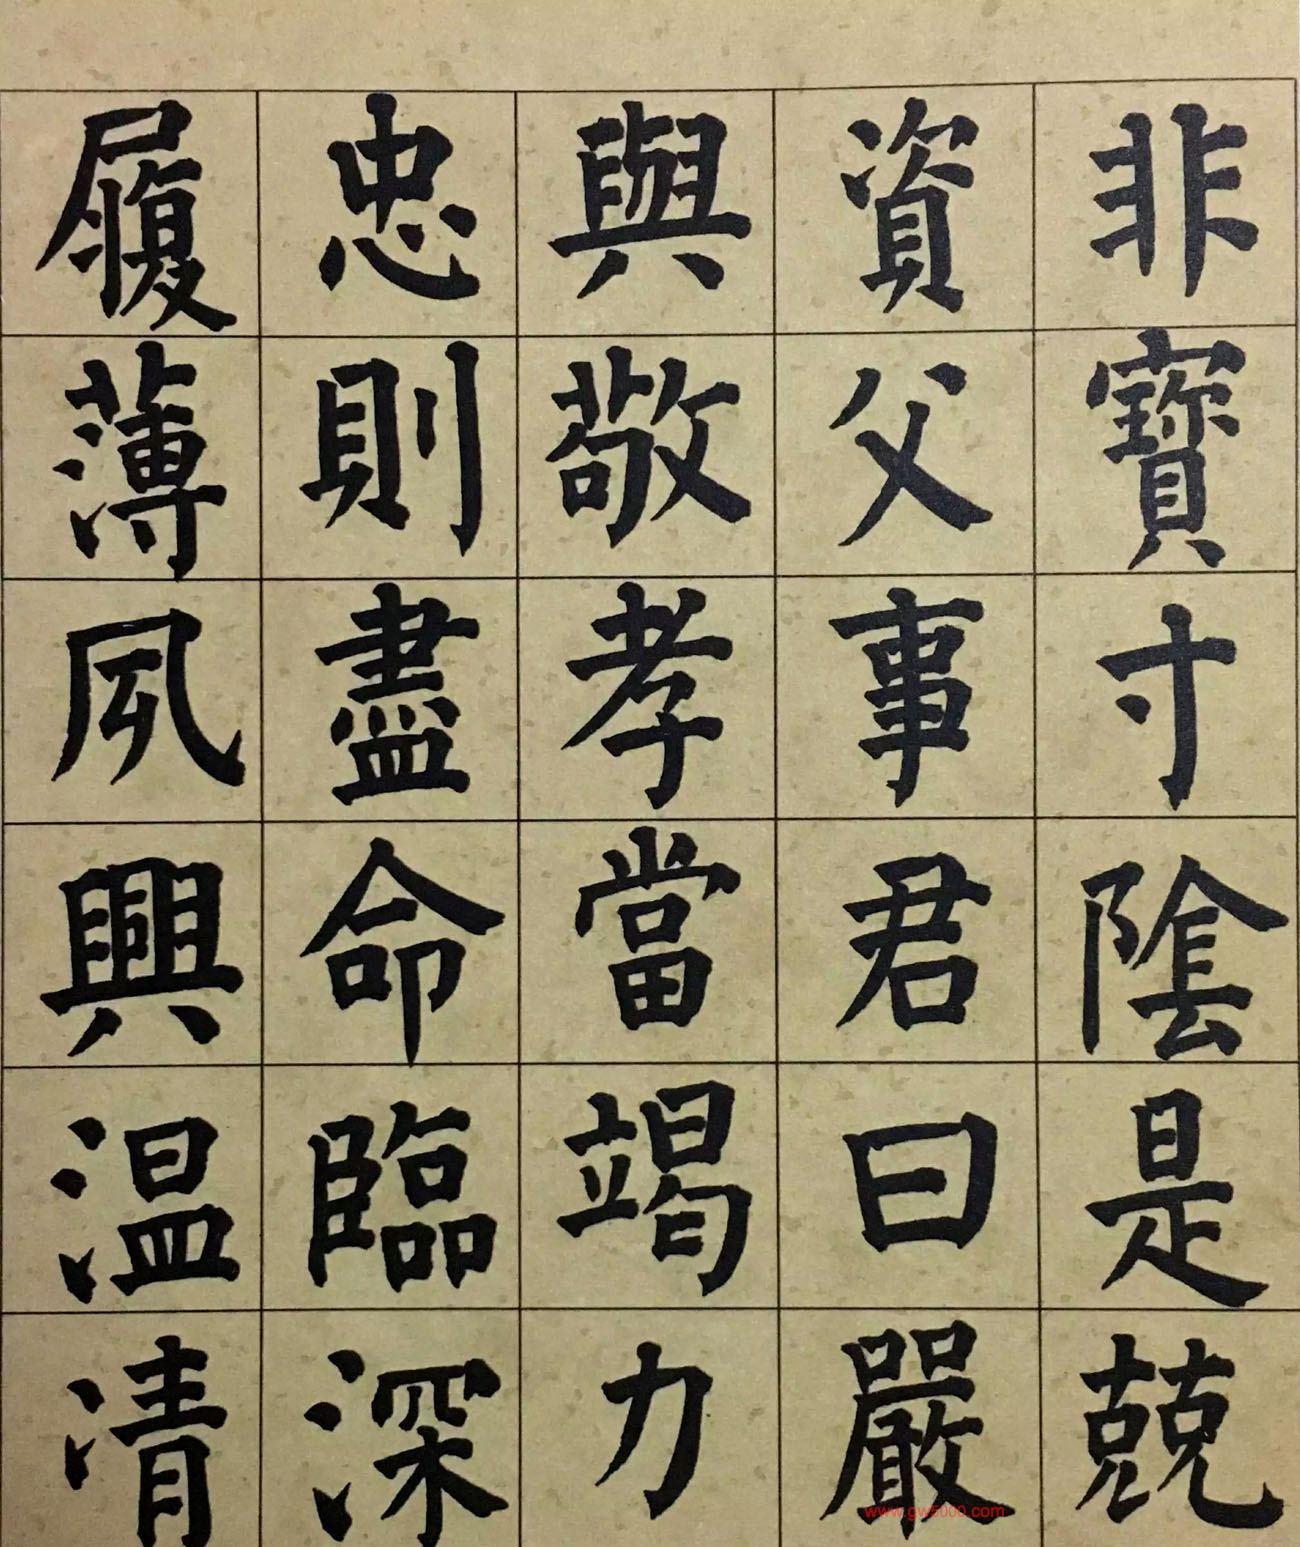 非寶寸陰是兢
資父事君曰嚴
與敬孝當竭力
忠則盡命臨深
履薄夙興温凊
www.gw5000.com